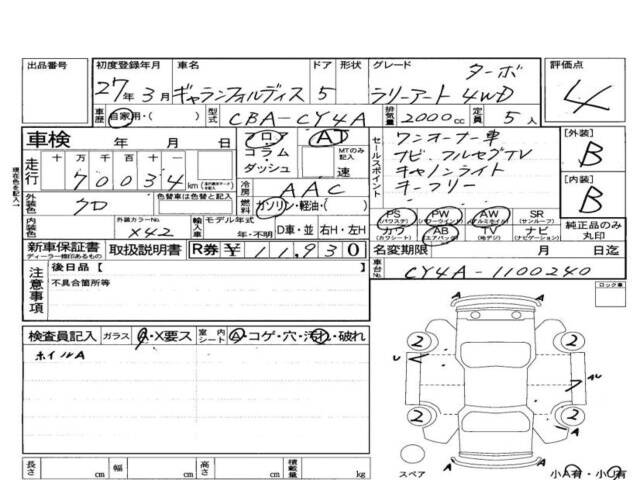 出品番号 初度登録年月 車名 ドア 形状 グレード 評価点
27年 3月 ギャランフォルティス 5 ターボ
ラリーアート 4WD 4
車歴 自家用・( ) 型式 CBA-CY4A 排気量 2000cc 定員 5人
車検 年 月 日 フロア AT セールスポイント ワンオーナー車 [外装]
走行 十 万 千 百 十 一 コラム・ダッシュ MTのみ記入 速 ナビ、フルセグTV B
70034 km キセノンライト [内装]
冷房 AAC キーフリー B
外装色 クロ 色替車は色替と記入 燃料 ガソリン・軽油・( )
現在色を記入↑
PS (パワステ) PW (パワーウィンド) AW (アルミホイル) SR (サンルーフ) 純正品のみ丸印
内装色 外装カラーNo. X42 輸入車 モデル年式 年・不明 D車・並 右H・左H カワ (カワシート) AB (エアバッグ) TV (地デジ) ナビ (ナビゲーション)
新車保証書 ディーラー捺印あるもの 取扱説明書 R券 ¥ 11,930 名変期限 月 日迄
注意事項 後日品[ ] 車台No. CY4A-1100240
不具合箇所等 ロック車
検査員記入 ガラス A・X要ス 室内シート A・コゲ・穴・汚れ・破れ
ホイルA
A A
2 2
2 2
A A
スペア 小A有・小U有
長さ cm 幅 cm 高さ cm 積載量 kg